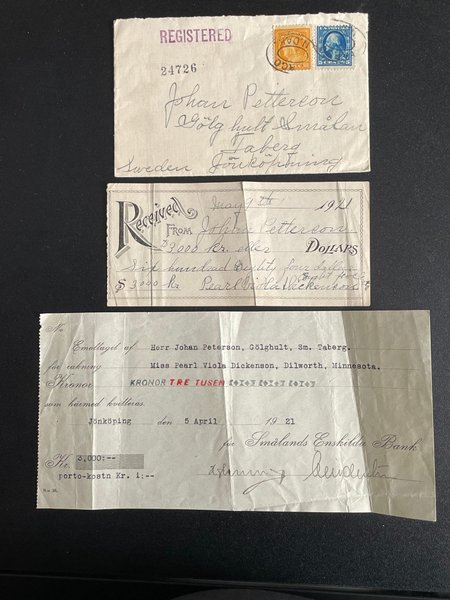 REGISTERED
24726
CAGO
5 CENTS 5
Johan Petterson
Gölghult Småland
Taberg
Sweden Jönköpning
May 9th 1921
Received
FROM Johan Petterson
$3000 kr. eller DOLLARS
Six hundred Eighty four dollars
$ 3000 kr Pearl Viola Dickenson
No
Emottaget af Herr Johan Peterson, Gölghult, Sm. Taberg.
för räkning Miss Pearl Viola Dickenson, Dilworth, Minnesota.
Kronor KRONOR TRE TUSEN
som härmed kvitteras.
Jönköping den 5 April 1921
för Smålands Enskilda Bank
Kr. 3,000:--
porto-kostn Kr. 1:--